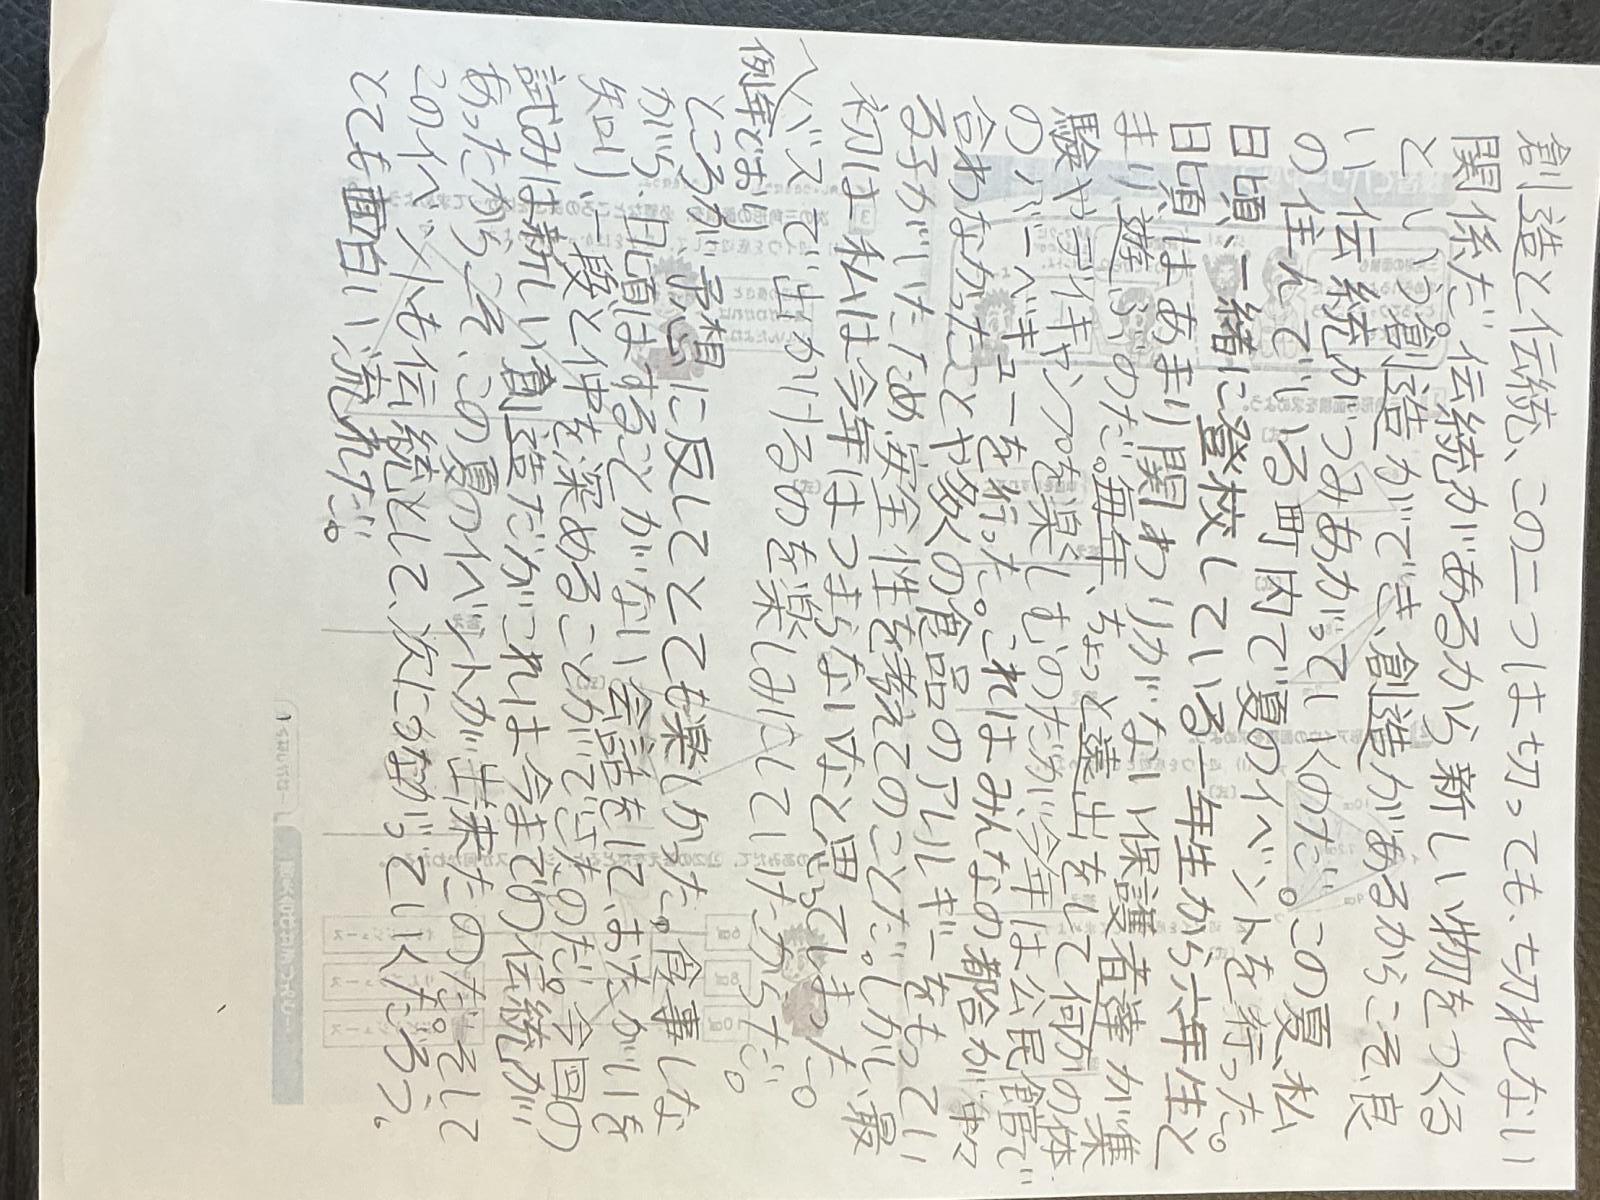 創造と伝統、この二つは切っても、切れない
関係だ。伝統があるから新しい物をつくる
という創造ができ、創造があるからこそ、良
い伝統がつみあがっていくのだ。この夏、私
の住んでいる町内で夏のイベントを行った。
日頃、一緒に登校している一年生から六年生と
日頃はあまり関わりがない保護者達が集
まり、遊ぶのだ。毎年、ちょっと遠出をして何かの体
験やデイキャンプを楽しむのだが、今年は公民館で
のバーベキューを行った。これはみんなの都合が中々
合わなかったことや多くの食品のアレルギーをもってい
る子がいたため安全性を考えてのことだ。しかし、最
初は私は今年はつまらないなと思ってしまった。
例年どおり
バスで出かけるのを楽しみにしていたからだ。
ところが予想に反してとても楽しかった。食事しな
がら、日頃はすることがない会話をして、おたがいを
知り、一段と仲を深めることができたのだ。今回の
試みは新しい創造だがこれは今までの伝統が
あったからこそ、この夏のイベントが出来たのだ。そして
このイベントも伝統として、次につながっていくだろう。
とても面白い流れだ。